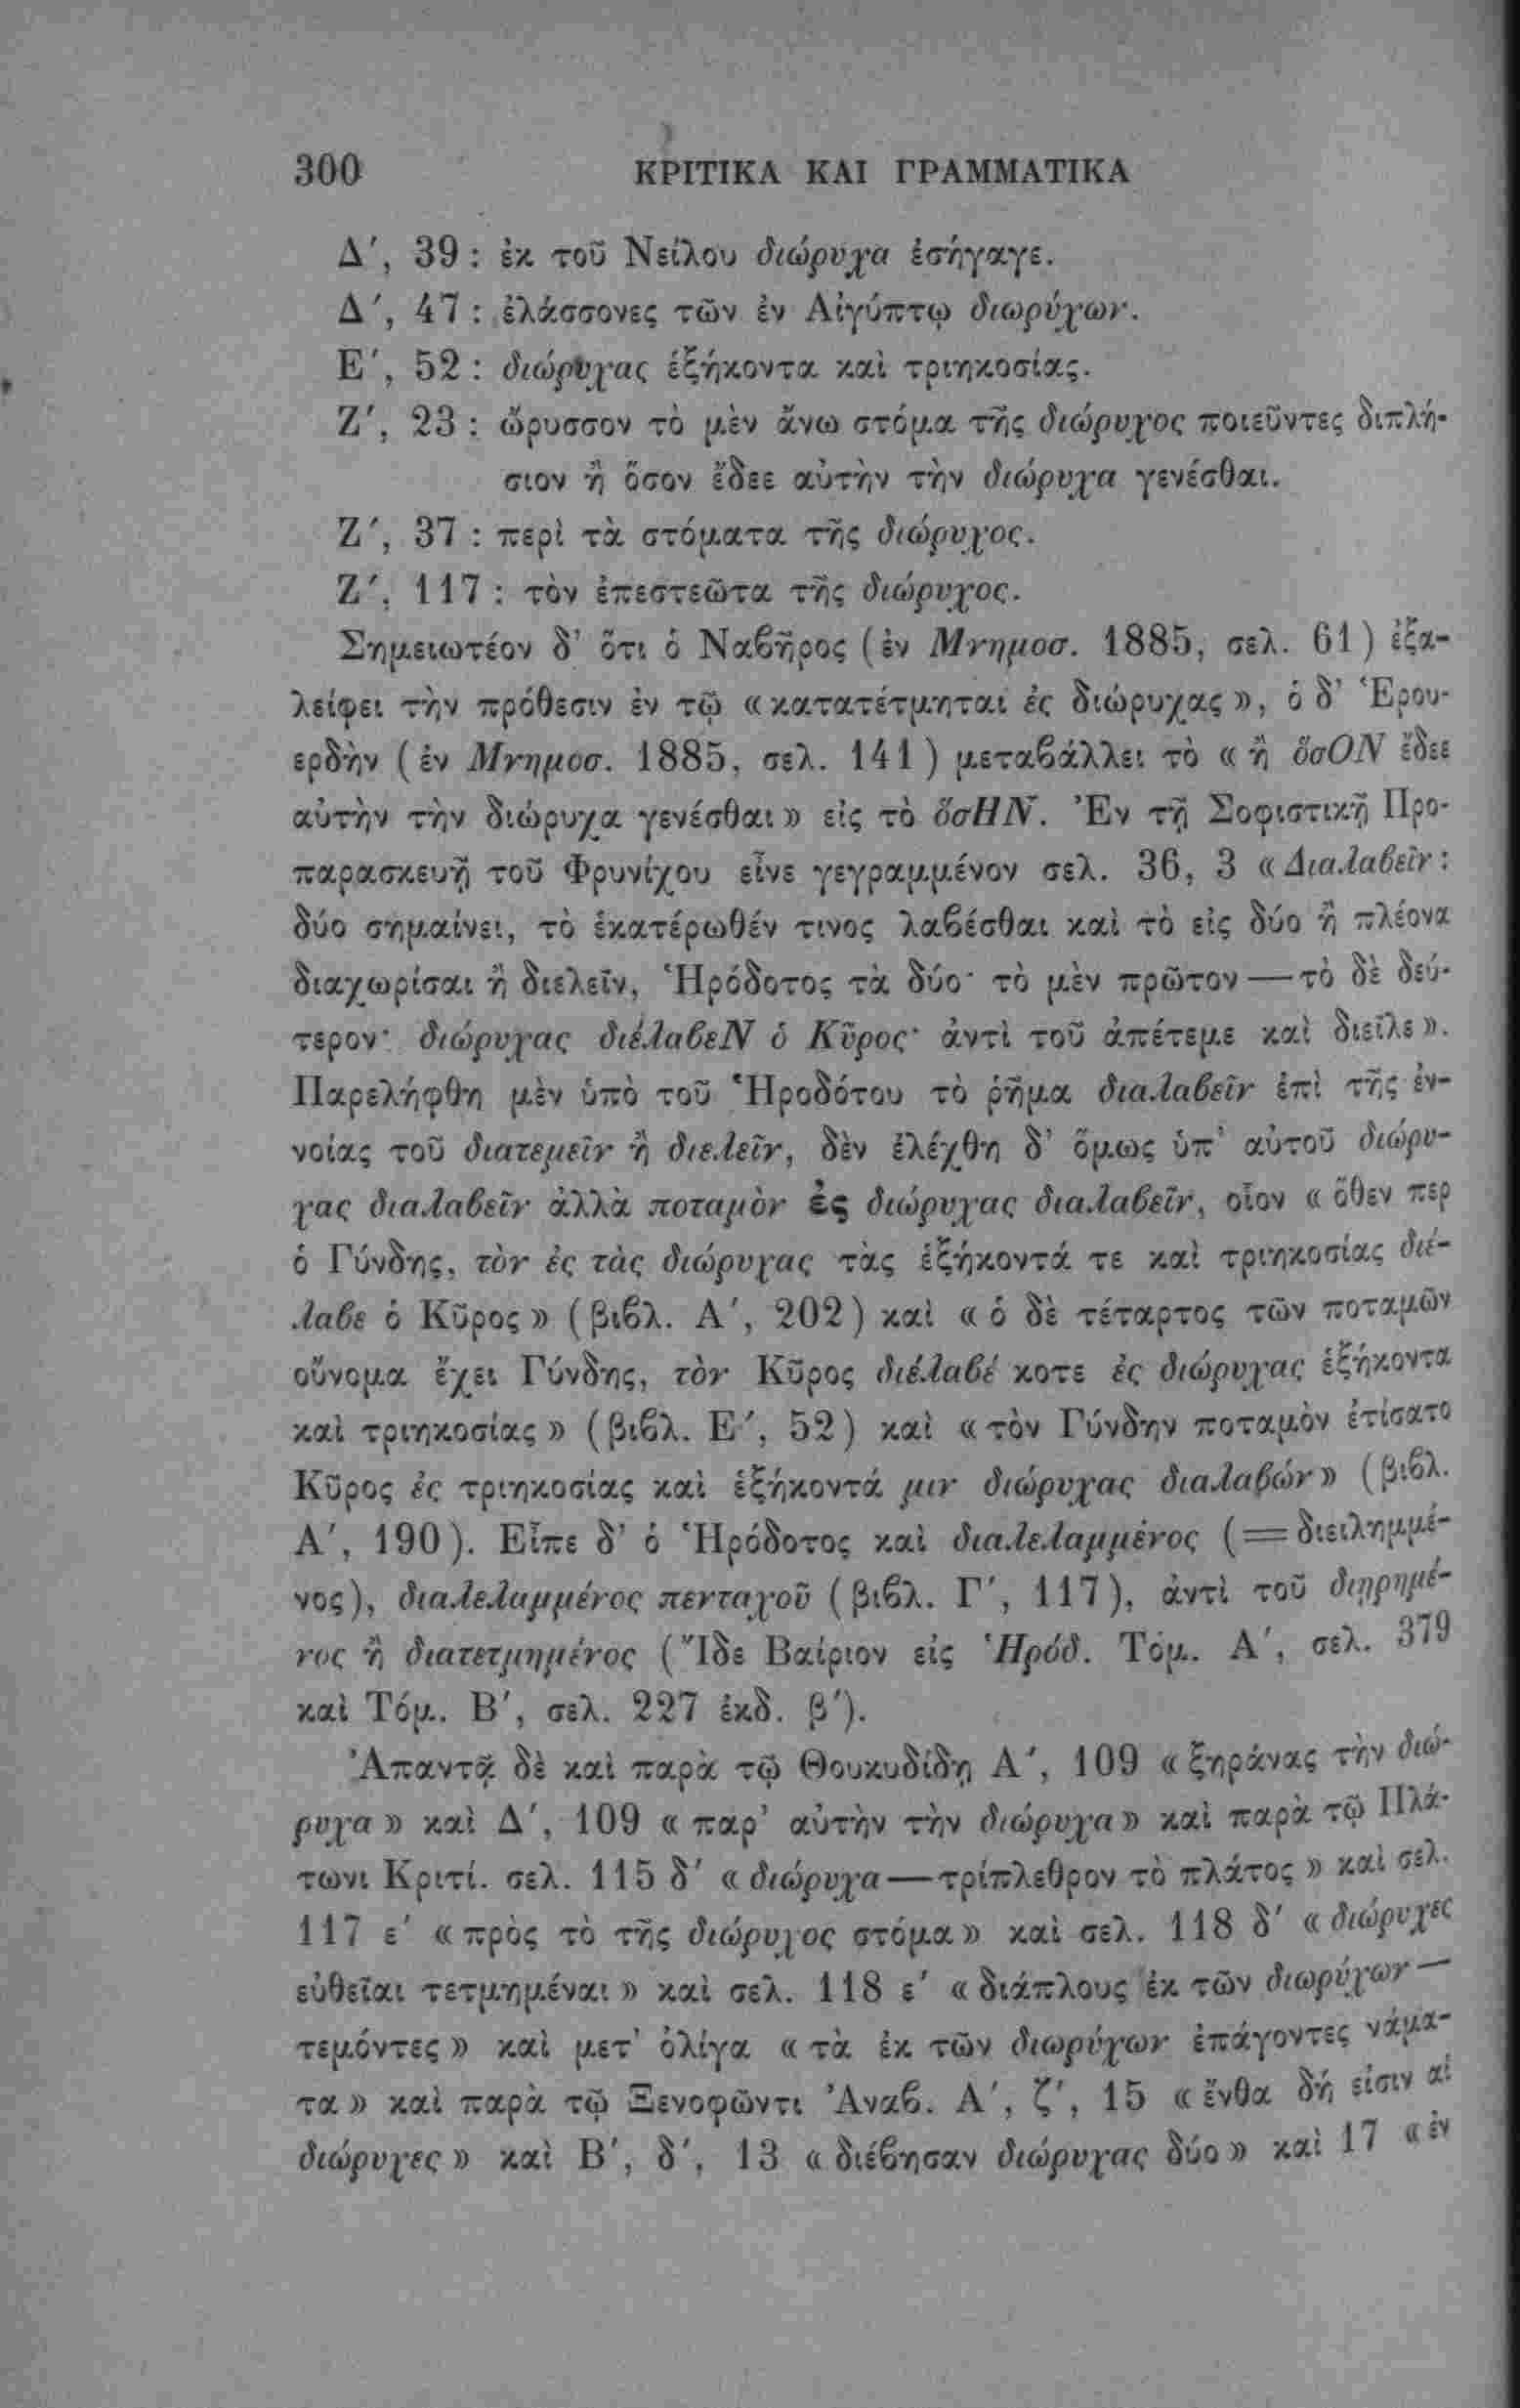 300 ΚΡΙΤΙΚΑ ΚΑΙ ΓΡΑΜΜΑΤΙΚΑ
Δ′, 39 : ἐκ τοῦ Νείλου διώρυχα ἐσήγαγε.
Δ′, 47 : ἐλάσσονες τῶν ἐν Αἰγύπτῳ διωρύχων.
Ε′, 52 : διώρυχας ἑξήκοντα καὶ τριηκοσίας.
Ζ′, 23 : ὤρυσσον τὸ μὲν ἄνω στόμα τῆς διώρυχος ποιεῦντες διπλή-
σιον ἢ ὅσον ἔδεε αὐτὴν τὴν διώρυχα γενέσθαι.
Ζ′, 37 : περὶ τὰ στόματα τῆς διώρυχος.
Ζ′, 117 : τὸν ἐπεστεῶτα τῆς διώρυχος.
Σημειωτέον δ’ ὅτι ὁ Ναβῆρος (ἐν Μνημοσ. 1885, σελ. 61) ἐξα-
λείφει τὴν πρόθεσιν ἐν τῷ « κατατέτμηται ἐς διώρυχας », ὁ δ’ Ἑρου-
ερδὴν (ἐν Μνημοσ. 1885, σελ. 141) μεταβάλλει τὸ « ἢ ὅσΟΝ ἔδεε
αὐτὴν τὴν διώρυχα γενέσθαι » εἰς τὸ ὅσΗΝ. Ἐν τῇ Σοφιστικῇ Προ-
παρασκευῇ τοῦ Φρυνίχου εἶνε γεγραμμένον σελ. 36, 3 « Διαλαβεῖν :
δύο σημαίνει, τὸ ἑκατέρωθέν τινος λαβέσθαι καὶ τὸ εἰς δύο ἢ πλέονα
διαχωρίσαι ἢ διελεῖν, Ἡρόδοτος τὰ δύο· τὸ μὲν πρῶτον — τὸ δὲ δεύ-
τερον· διώρυχας διέλαβεΝ ὁ Κῦρος· ἀντὶ τοῦ ἀπέτεμε καὶ διεῖλε ».
Παρελήφθη μὲν ὑπὸ τοῦ Ἡροδότου τὸ ῥῆμα διαλαβεῖν ἐπὶ τῆς ἐν-
νοίας τοῦ διατεμεῖν ἢ διελεῖν, δὲν ἐλέχθη δ’ ὅμως ὑπ’ αὐτοῦ διώρυ-
χας διαλαβεῖν ἀλλὰ ποταμὸν ἐς διώρυχας διαλαβεῖν, οἷον « ὅθεν περ
ὁ Γύνδης, τὸν ἐς τὰς διώρυχας τὰς ἑξήκοντά τε καὶ τριηκοσίας διέ-
λαβε ὁ Κῦρος » (βιβλ. Α′, 202) καὶ « ὁ δὲ τέταρτος τῶν ποταμῶν
οὔνομα ἔχει Γύνδης, τὸν Κῦρος διέλαβέ κοτε ἐς διώρυχας ἑξήκοντα
καὶ τριηκοσίας » (βιβλ. Ε′, 52) καὶ « τὸν Γύνδην ποταμὸν ἐτίσατο
Κῦρος ἐς τριηκοσίας καὶ ἑξήκοντά μιν διώρυχας διαλαβών » (βιβλ.
Α′, 190). Εἶπε δ’ ὁ Ἡρόδοτος καὶ διαλελαμμένος (= διειλημμέ-
νος), διαλελαμμένος πενταχοῦ (βιβλ. Γ′, 117), ἀντὶ τοῦ διῃρημέ-
νος ἢ διατετμημένος (Ἴδε Βαίριον εἰς Ἡρόδ. Τόμ. Α′, σελ. 379
καὶ Τόμ. Β′, σελ. 227 ἐκδ. β′).
Ἀπαντᾷ δὲ καὶ παρὰ τῷ Θουκυδίδῃ Α′, 109 « ξηράνας τὴν διώ-
ρυχα » καὶ Δ′, 109 « παρ’ αὐτὴν τὴν διώρυχα » καὶ παρὰ τῷ Πλά-
τωνι Κριτί. σελ. 115 δ′ « διώρυχα — τρίπλεθρον τὸ πλάτος » καὶ σελ.
117 ε′ « πρὸς τὸ τῆς διώρυχος στόμα » καὶ σελ. 118 δ′ « διώρυχες
εὐθεῖαι τετμημέναι » καὶ σελ. 118 ε′ « διάπλους ἐκ τῶν διωρύχων —
τεμόντες » καὶ μετ’ ὀλίγα « τὰ ἐκ τῶν διωρύχων ἐπάγοντες νάμα-
τα » καὶ παρὰ τῷ Ξενοφῶντι Ἀναβ. Α′, ζ′, 15 « ἔνθα δή εἰσιν αἱ
διώρυχες » καὶ Β′, δ′, 13 « διέβησαν διώρυχας δύο » καὶ 17 « ἐν